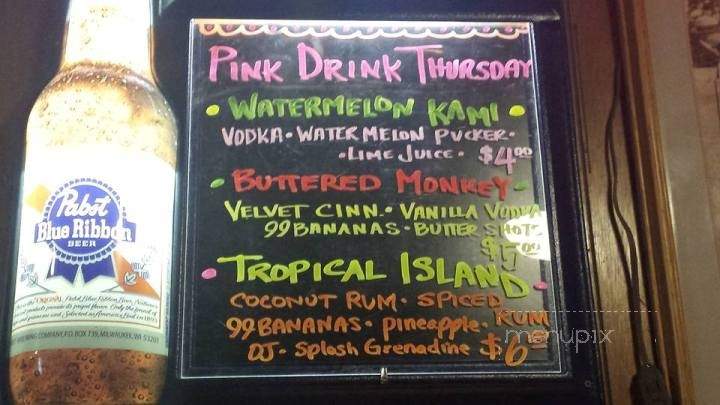 PINK DRINK THURSDAY
• WATERMELON KAMI •
VODKA • WATERMELON PUCKER •
• LIME JUICE • $4.00
• BUTTERED MONKEY •
VELVET CINN. • VANILLA VODKA
99 BANANAS • BUTTER SHOTS
$5.00
• TROPICAL ISLAND •
COCONUT RUM • SPICED RUM
99 BANANAS • pineapple •
OJ • Splash Grenadine $6
menupix
Pabst
Blue Ribbon
BEER